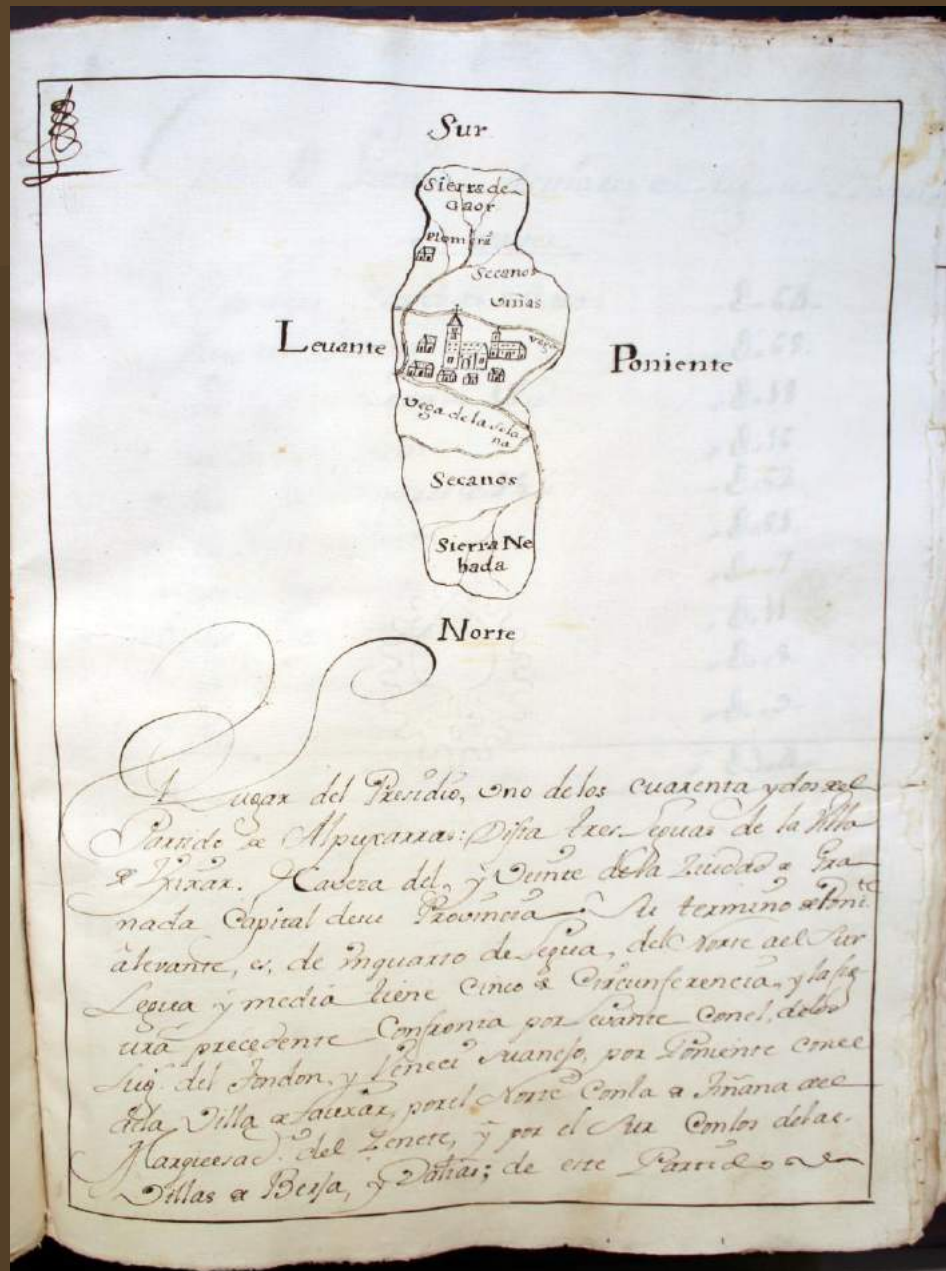 Sur
Sierra de
Gaor
Plomerª
Secano
viñas
Levante
vega
Poniente
Vega de la Sola
na
Secanos
Sierra Ne
bada
Norte
Lugar del Presidio, vno de los cuarenta y dos del
Partido de Alpuxarras: Dista tres Leguas de la Villa
de Vxixar. Caveza del, y Veinte de la Ziudad de Gra
nada Capital de su Provincia. Su termino de Ponte
â levante, es, de vn quarto de Legua, del Norte ael Sur
Legua y media tiene Cinco de Circunferencia, y la fig
ura precedente Confronta por levante Con el, de los
Lug.s del Fondon, y Benecid, por Poniente con el
dela Villa de Lauxar, por el Norte Con la de Fiñana del
Marquesad.º del Zenete, y por el Sur Con los de las
Villas de Berja, y Dalias; de este Partido